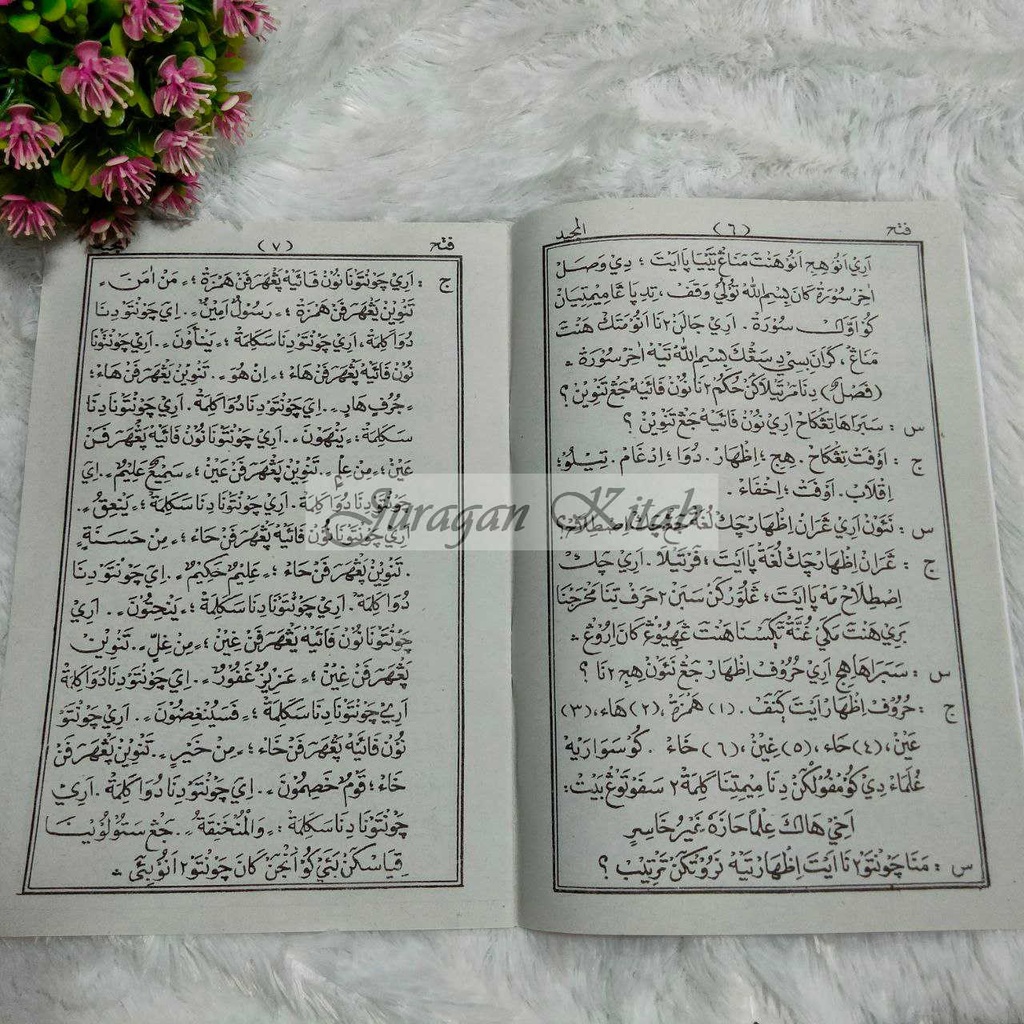 فتح (٦) المجيد
اري انو هيج انو هنت مناڠ تيڠيا ڤاايت ؛ دي وصل
اخر سورة كان بسم الله تولي وقف، تدڤا ڠاميمتيان
كو اول سورة. اري جالن٢نا انو متك هنت
مناڠ، كران بسي د سڠك بسم الله تيه اخر سورة
(فصل) دنا مرتيلاكن حكم٢نا نون فائيه جڠ تنوين ؟
س : سبراها تڠكاح اري نون فائيه جڠ تنوين ؟
ج : اوفت تڠكاح. هيج ؛ اظهار. دوا ؛ ادغام. تيلو ؛
اقلاب. اوفت ؛ اخفاء.
س : نئون اري ڠران اظهار چك لغة جڠ چك اصطلاح؟
ج : ڠران اظهار چك لغة ڤاايت ؛ فرتيلا. اري چك
اصطلاح مه ڤاايت ؛ ڠلوركن سبن٢ حرف تنا مخرجنا
بري هنت مكي غنة
س : سبراها هيج اري حروف اظهار جڠ نئون هيج٢نا ؟
ج : حروف اظهار ايت كنف. (١) همزة، (٢) هاء، (٣)
عين، (٤) حاء، (٥) غين، (٦) خاء. كو سواريه
علماء دي كومفولكن دنا ميمتنا كلمة٢ سفوتوڠ بيت :
اخي هاك علما حازه غير خاسر
س : منا چونتو٢نا ايت اظهار تيه نروتكن ترتيب ؟
فتح (٧) المجيد
ج : اري چونتونا نون فائيه ڤڠهرفن همزة ؛ - من اٰمن -
تنوين ڤڠهرفن همزة ؛ - رسول امين -. اي چونتو دنا
دوا كلمة، اري چونتو دنا سكلمة ؛ - ينأون -. اري چونتونا
نون فائيه ڤڠهرفن هاء ؛ - ان هو -. تنوين ڤڠهرفن هاء ؛
- جرف هار -. اي چونتو دنا دوا كلمة. اري چونتونا دنا
سكلمة ؛ - ينهون -. اري چونتونا نون فائيه ڤڠهرفن
عين ؛ - من علم -. تنوين ڤڠهرفن عين ؛ - سميع عليم -. اي
چونتونا دوا كلمة. اري چونتونا دنا سكلمة ؛ - ينعق -.
اري چونتونا نون فائيه ڤڠهرفن حاء ؛ - من حسنة
-. تنوين ڤڠهرفن حاء ؛ - عليم حكيم -. اي چونتو دنا
دوا كلمة. اري چونتونا دنا سكلمة ؛ - ينحتون -. اري
چونتونا نون فائيه ڤڠهرفن غين ؛ - من غل -. تنوين
ڤڠهرفن غين ؛ - عزيز غفور -. اي چونتو دنا دوا كلمة
اري چونتونا دنا سكلمة ؛ - فسينغضون -. اري چونتو
نون فائيه ڤڠهرفن خاء ؛ - من خير -. تنوين ڤڠهرفن
خاء ؛ قوم خصمون -. اي چونتونا دنا دوا كلمة. اري
چونتونا دنا سكلمة : - والمنخنقة -. جڠ ستولوينا
قياسكن بئي كو انجن كان چونتو٢ انو بيئي
Juragan Kitab